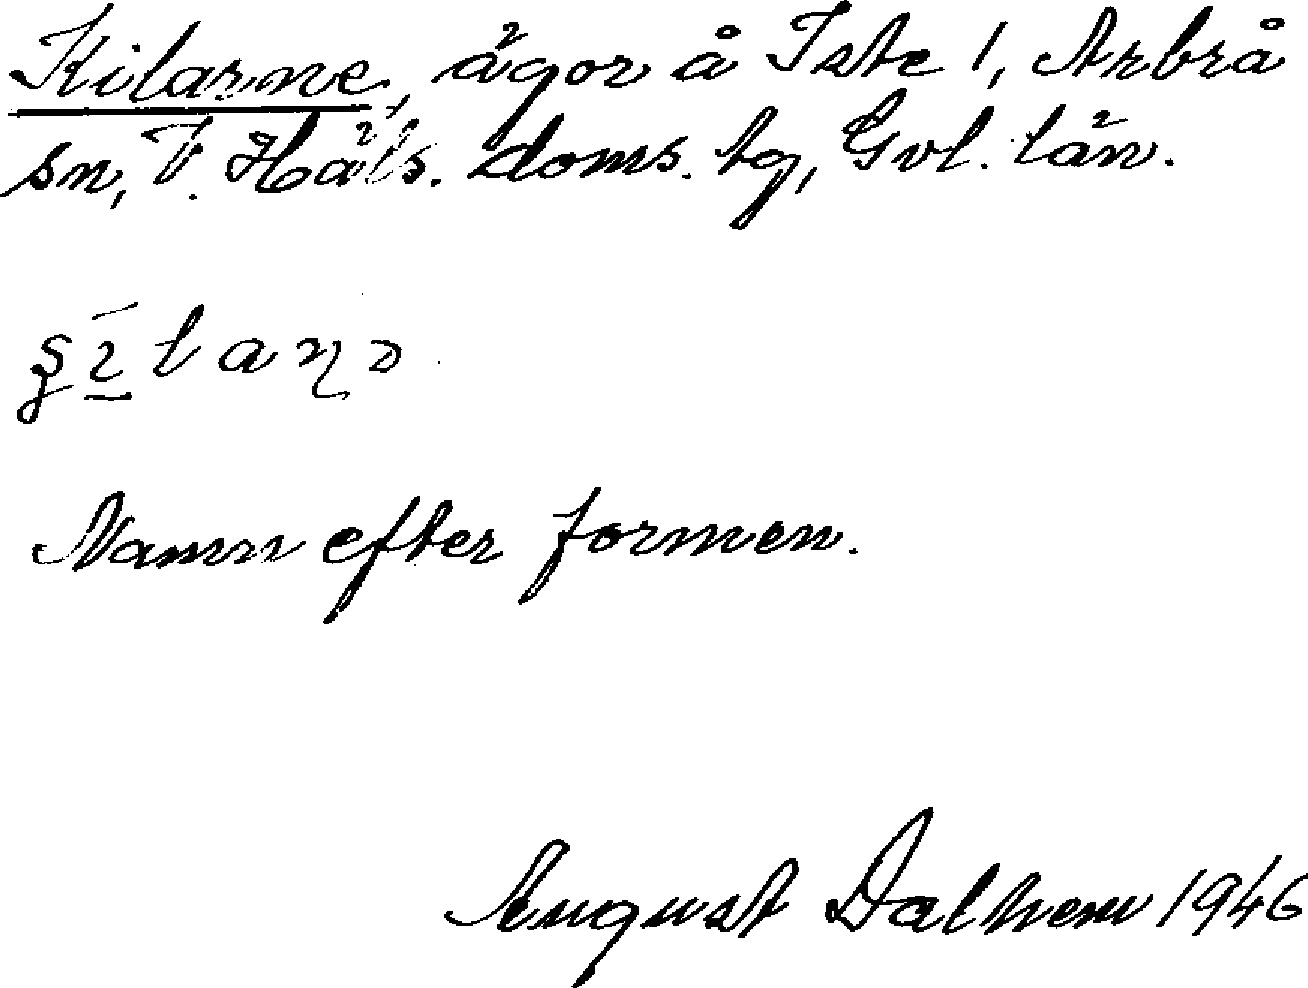 Kilarne, ägor å Iste 1, Arbrå
sn, V. Häls. doms. tg, Gvl. län.
Namn efter formen.
August Dalhem 1946